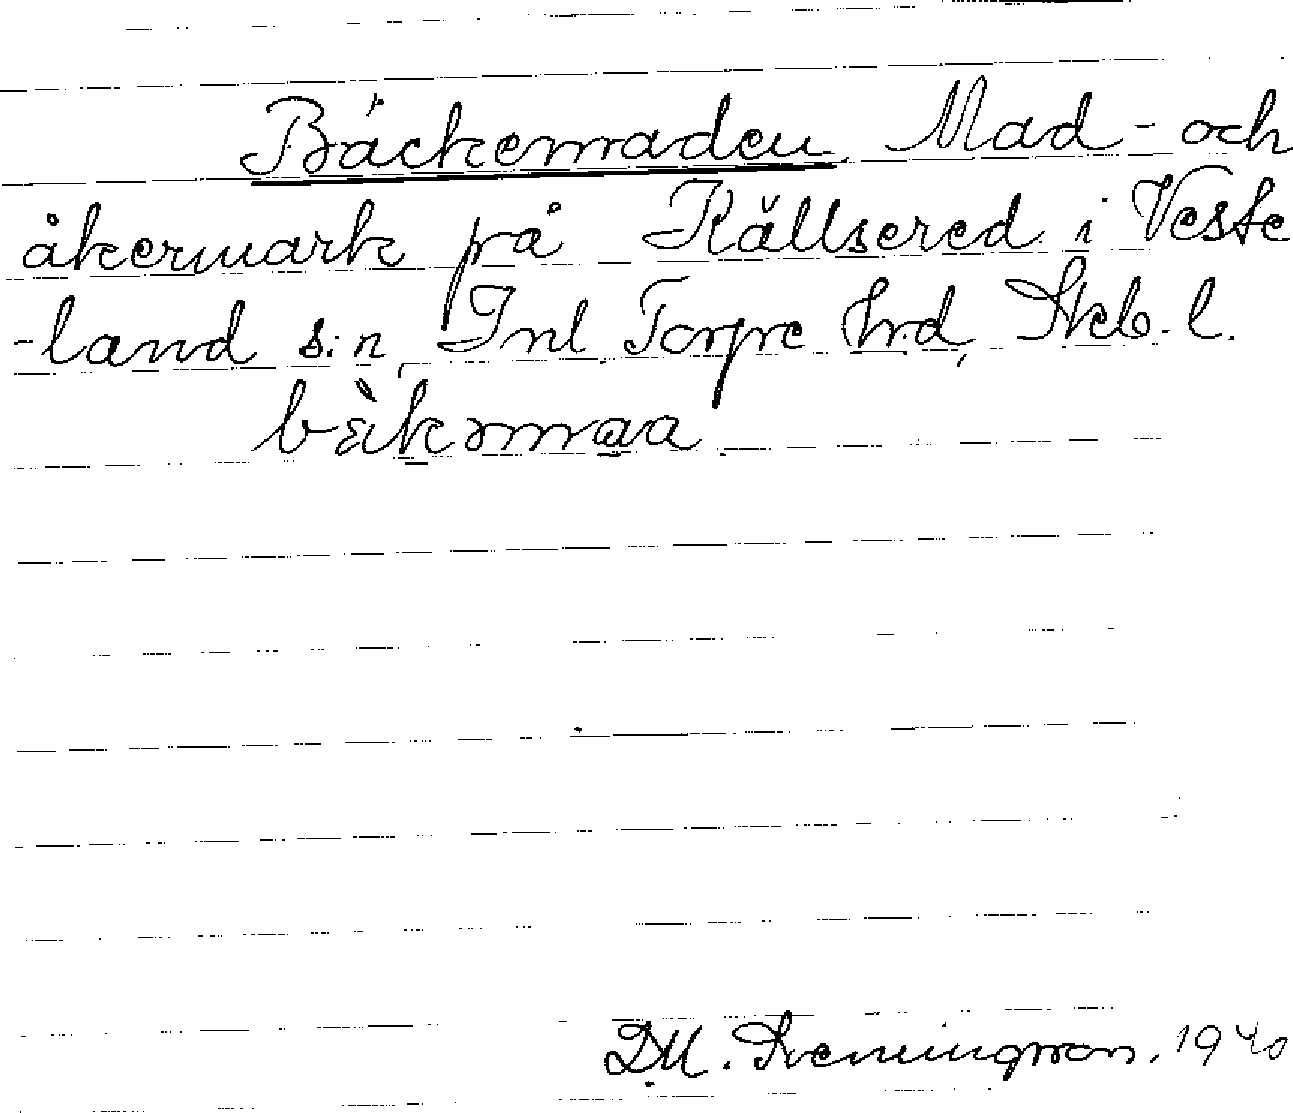 Bäckemaden Mad- och
åkermark på Källsered i Veste
-land s:n, Inl Torpe Hrd, Gbg-l.
bäkmaa
D.M. Sveningson. 1940